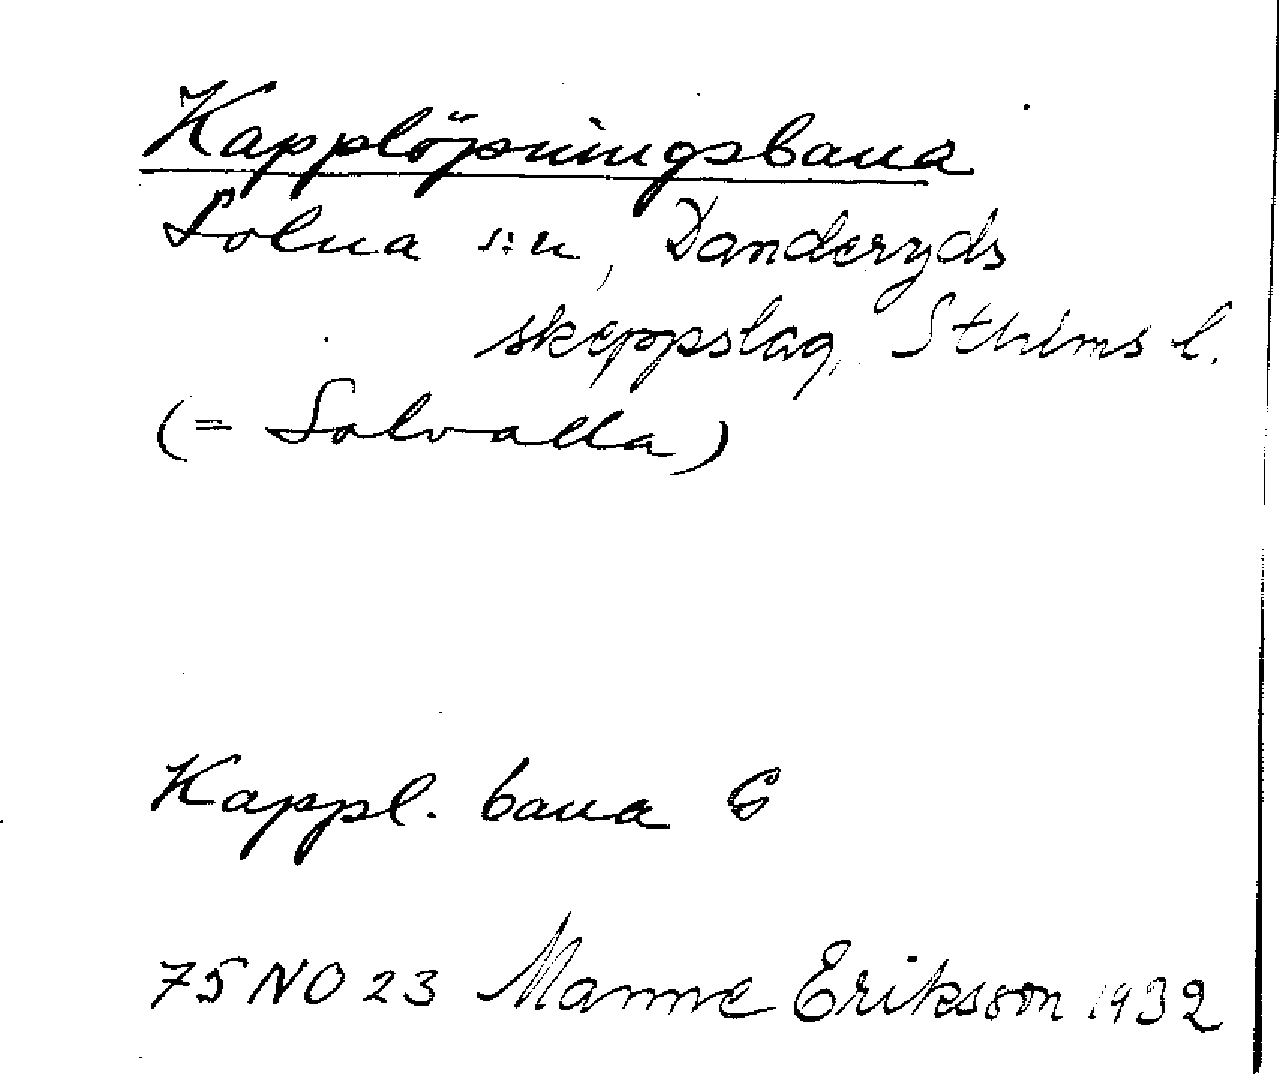 Kapplöpningsbana
Solna sn, Danderyds
skeppslag, Sthlms l.
(= Solvalla)
Kappl. bana
75 NO 23 Manne Eriksson 1932